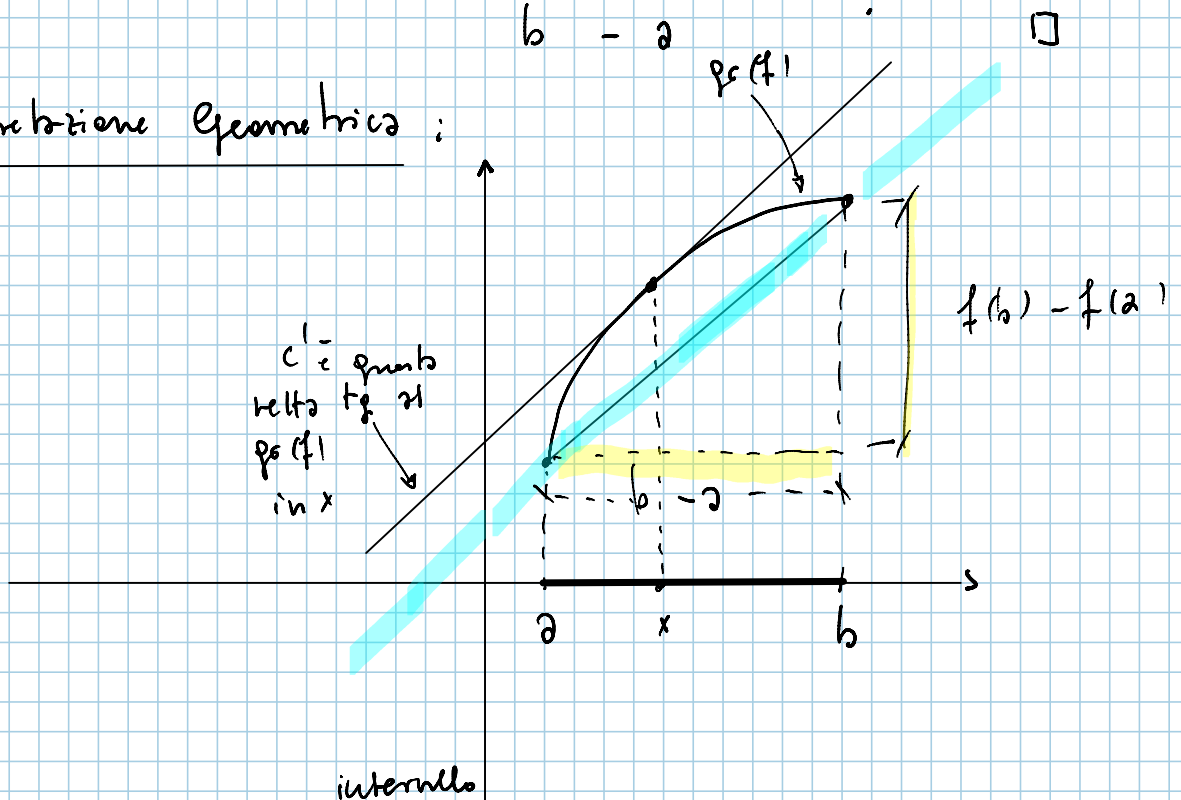 b - a
gr(f)
retazione Geometrica :
f(b) - f(a)
c'è questa
retta tg al
gr(f)
in x
b - a
s
a
x
b
intervallo